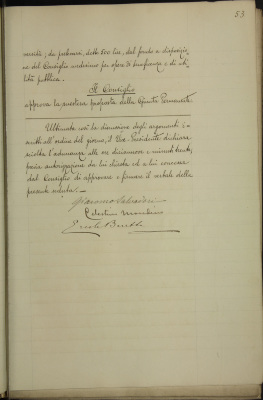 53
versità; da prelevarsi, dette 500 lire, dal fondo a disposizio
ne del Consiglio medesimo per opere di beneficenza e di uti
lità pubblica.
Il Consiglio
approva la suestesa proposta della Giunta Permanente.
Ultimata così la discussione degli argomenti i
scritti all'ordine del giorno, il Vice-Presidente dichiara
sciolta l'adunanza alle ore diciannove e minuti trenta,
previa autorizzazione da lui chiesta ed a lui concessa
dal Consiglio di approvare e firmare il verbale della
presente seduta.
Giacomo
Celestino
Ercole